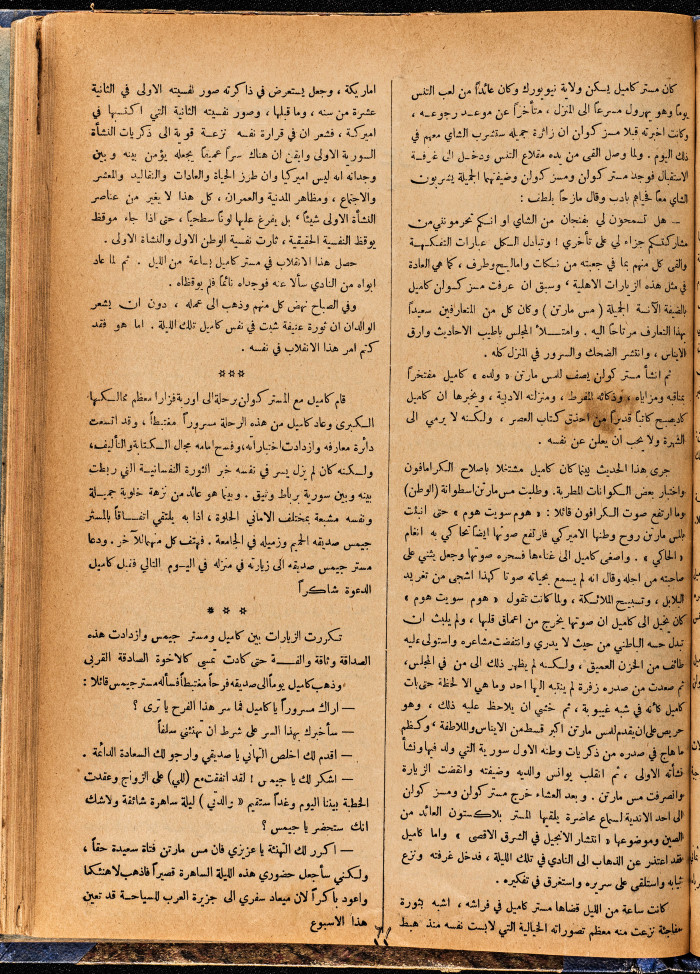 كان مستر كاميل يسكن ولاية نيويورك وكان عائداً من لعب التنس
يوماً وهو يهرول مسرعاً الى المنزل ، متأخراً عن موعد رجوعه ،
وكانت اخبرته قبلا مسز كولن ان زائرة جميله ستشرب الشاي معهم في
ذلك اليوم . ولما وصل القى من يده مقلاع التنس ودخل الى غرفة
الاستقبال فوجد مستر كولن ومسز كولن وضيفتهما الجميلة يشربون
الشاي معاً فحياهم بادب وقال مازحاً بلطف :
— هل تسمحون لي بفنجان من الشاي او انكم تحرمونني من
مشاركتكم جزاء لي على تأخري ! وتبادل الكل عبارات التفكهة
والقى كل منهم بما في جعبته من نكات واماليح وطرف ، كما هي العادة
في مثل هذه الزيارات الاهلية ، وسبق ان عرفت مسز كولن كاميل
بالضيفة الآنسة الجميلة ( مس مارتن ) وكان كل من المتعارفين سعيداً
بهذا التعارف مرتاحاً اليه . وامتلأ المجلس باطيب الاحاديث وارق
الايناس ، وانتشر الضحك والسرور في المنزل كله .
ثم انشأ مستر كولن يصف للمس مارتن « ولده » كاميل مفتخراً
بمناقبه ومزاياه ، وذكائه المفرط ، ومنزلته الادبية ، ونخبرها ان كاميل
كاد يصبح كاتباً قديراً من احذق كتاب العصر ، ولكنه لا يرمي الى
الشهرة ولا يحب ان يعلن عن نفسه .
جرى هذا الحديث بينما كان كاميل مشتغلا باصلاح الكرامافون
واختبار بعض الكوانات المطربة . وطلبت مس مارتن اسطوانة (الوطن)
وما ارتفع صوت الكرافون قائلا : « هوم سويت هوم » حتى انبثت
بلس مارتن روح وطنها الاميركي فارتفع صوتها ايضاً تحاكي به انغام
« الحاكي » . واصغى كاميل الى غناءها فسحره صوتها وجعل يثني على
صاحبته من اجله وقال انه لم يسمع بحياته صوتا كهذا اشجى من تغريد
البلابل ، وتسبيح الملائكة ، ولما كانت تقول « هوم سويت هوم »
كان يخيل الى كاميل ان صوتها يخرج من اعماق قلبها ، ولم يلبث ان
تبدل حسه الباطني من حيث لا يدري وانتفضت مشاعره واستولى عليه
طائف من الحزن العميق ، ولكنه لم يظهر ذلك الى من في المجلس،
ثم صعدت من صدره زفرة لم ينتبه اليها احد وما هي الا لحظة حتى بات
كاميل كأنه في شبه غيبوبة ، ثم خشي ان يلاحظ عليه ذلك ، وهو
حريص على ان يقدم للمس مارتن اكبر قسط من الايناس والملاطفة ، وكظم
ما هاج في صدره من ذكريات وطنه الاول سورية التي ولد فيها ونشأ
نشأته الاولى ، ثم انقلب يوانس والديه وضيفته وانقضت الزيارة
وانصرفت مس مارتن . وبعد العشاء خرج مستر كولن ومسز كولن
الى احد الاندية لسماع محاضرة يلقيها المستر بلاكستون العائد من
الصين وموضوعها « انتشار الانجيل في الشرق الاقصى » واما كاميل
فقد اعتذر عن الذهاب الى النادي في تلك الليلة ، فدخل غرفته ونزع
ثيابه واستلقى على سريره واستغرق في تفكيره .
كانت ساعة من الليل قضاها مستر كاميل في فراشه ، اشبه بثورة
مفاجئة نزعت منه معظم تصوراته الخيالية التي لابست نفسه منذ هبط
اماريكة ، وجعل يستعرض في ذاكرته صور نفسيته الاولى في الثانية
عشرة من سنه ، وما قبلها ، وصور نفسيته الثانية التي اكتسبها في
اميركة ، فشعر ان في قرارة نفسه نزعة قوية الى ذكريات النشأة
السورية الاولى وايقن ان هناك سراً عميقاً يجعله يؤمن بينه وبين
وجدانه انه ليس اميركيا وان طرز الحياة والعادات والتقاليد والمعشر
والاجتماع ، ومظاهر المدنية والعمران ، كل هذا لا يغير من عناصر
النشأة الاولى شيئاً ، بل يفرغ عليها لوناً سطحياً ، حتى اذا جاء موقظ
يوقظ النفسية الحقيقية ، ثارت نفسية الوطن الاول والنشأة الاولى .
حصل هذا الانقلاب في مستر كاميل بساعة من الليل . ثم لما عاد
ابواه من النادي سألا عنه فوجداه نائماً فلم يوقظاه .
وفي الصباح نهض كل منهم وذهب الى عمله ، دون ان يشعر
الوالدان ان ثورة عنيفة شبت في نفس كاميل تلك الليلة . اما هو فقد
كتم امر هذا الانقلاب في نفسه .
***
قام كاميل مع المستر كولن برحلة الى اوربة فزارا معظم ممالكها
الكبرى وعاد كاميل من هذه الرحلة مسروراً مغتبطاً ، وقد اتسعت
دائرة معارفه وازدادت اختباراته، وفسح امامه مجال الكتابة والتأليف،
ولكنه كان لم يزل يسر في نفسه خبر الثورة النفسانية التي ربطت
بينه وبين سورية برباط وثيق . وبينما هو عائد من نزهة خلوية جميلة
ونفسه مشبعة بمختلف الاماني الحلوة ، اذا به يلتقي اتفاقاً بالمستر
جيمس صديقه الحميم وزميله في الجامعة . فهتف كل منهما للآخر . ودعا
مستر جيمس صديقه الى زيارته في منزله في اليوم التالي فقبل كاميل
الدعوة شاكراً
* * *
تكررت الزيارات بين كاميل ومستر جيمس وازدادت هذه
الصداقة وثاقة والفة حتى كادت تمسي كالاخوة الصادقة القربى
،وذهب كاميل يوماً الى صديقه فرحاً مغتبطاً فسأله مستر جيمس قائلا :
— اراك مسروراً يا كاميل فما سر هذا الفرح يا ترى ؟
— سأخبرك بهذا السر على شرط ان تهنئني سلفاً
— اقدم لك اخلص التهاني يا صديقي وارجو لك السعادة الدائمة .
— اشكر لك يا جيمس ! لقد اتفقت مع (للي) على الزواج وعقدت
الخطبة بيننا اليوم وغداً ستقيم ( والدتي ) ليلة ساهرة شائقة ولا شك
انك ستحضر يا جيمس ؟
— اكرر لك التهنئة يا عزيزي فان مس مارتن فتاة سعيدة حقاً ،
ولكني سأجعل حضوري هذه الليلة الساهرة قصيراً فاذهب لاهنئكما
واعود باكراً لان ميعاد سفري الى جزيرة العرب للسياحة قد تعين
هذا الاسبوع